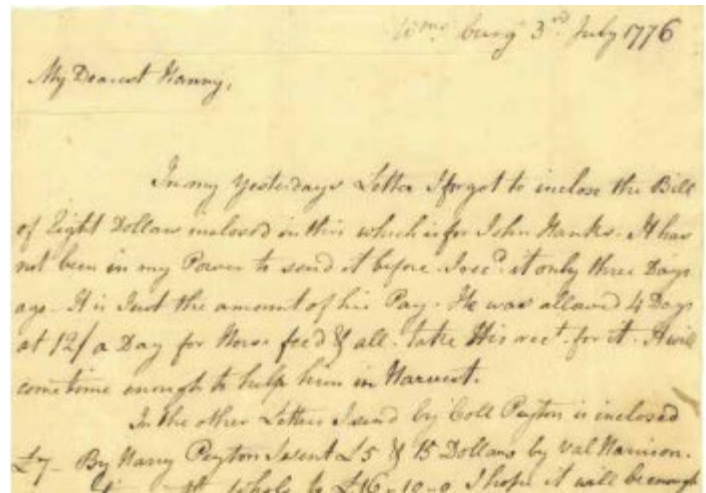 Wms burg 3rd July 1776
My Dearest Nanny,
In my yesterdays Letter I forgot to inclose the Bill
of Eight Dollars inclosed in this which is for John Hanks. It has
not been in my Power to send it before. I recd. it only three Days
ago. It is Just the amount of his Pay. He was allowed 4 Days
at 12/ a Day for Horse feed & all. take His rect. for it. It will
come time enough to help him in Harvest.
In the other Letter I send by Coll Peyton is inclosed
£7. By Harry Peyton I sent £5 & 15 Dollars by Val Harrison.
whole to £16-10-0 I hope it will be enough